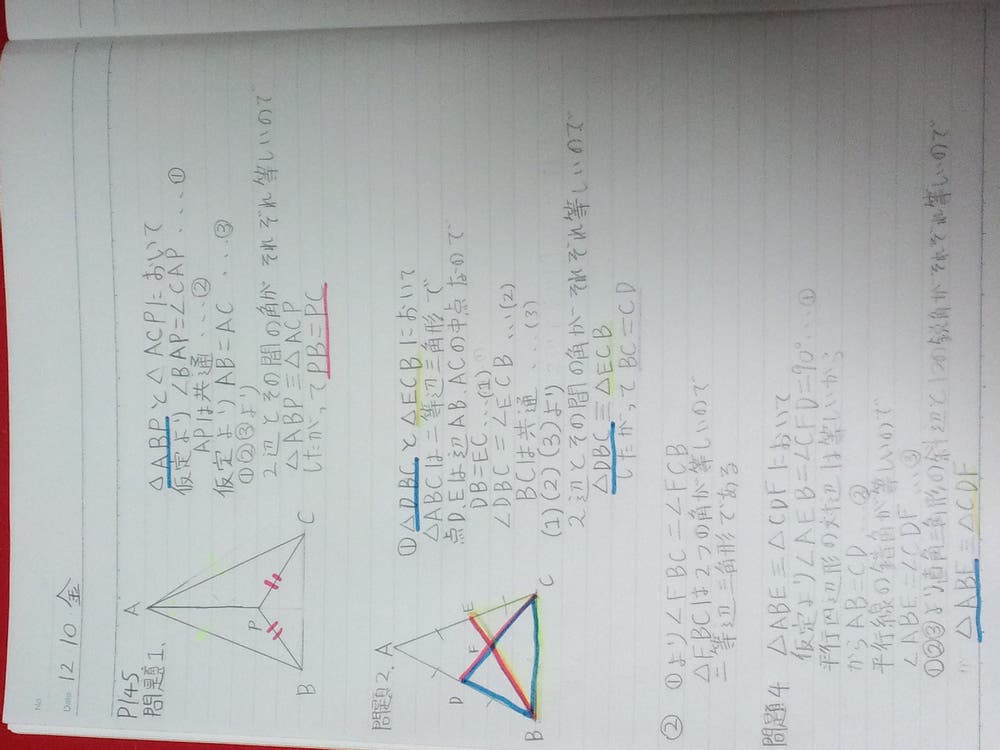 No.
Date 12 10 金
P145
問題1.
A
P
B
C
△ABPと△ACPにおいて
仮定より∠BAP=∠CAP...①
APは共通...②
仮定より AB=AC...③
①②③より
2辺とその間の角がそれぞれ等しいので
△ABP≡△ACP
したがってPB=PC
問題2.
A
D
E
F
B
C
① △DBCと△ECBにおいて
△ABCは二等辺三角形で
点D.Eは辺AB.ACの中点なので
DB=EC...(1)
∠DBC=∠ECB...(2)
BCは共通...(3)
(1)(2)(3)より
2辺とその間の角がそれぞれ等しいので
△DBC≡△ECB
したがってBC=CD
② ①より∠FBC=∠FCB
△FBCは2つの角が等しいので
二等辺三角形である
問題4 △ABE≡△CDFにおいて
仮定より∠AEB=∠CFD=90°...①
平行四辺形の対辺は等しいから
から AB=CD ②
平行線の錯角が等しいので
∠ABE=∠CDF...③
①②③より直角三角形の余斜辺と1つの鋭角がそれぞれ等しいので
△ABE≡△CDF